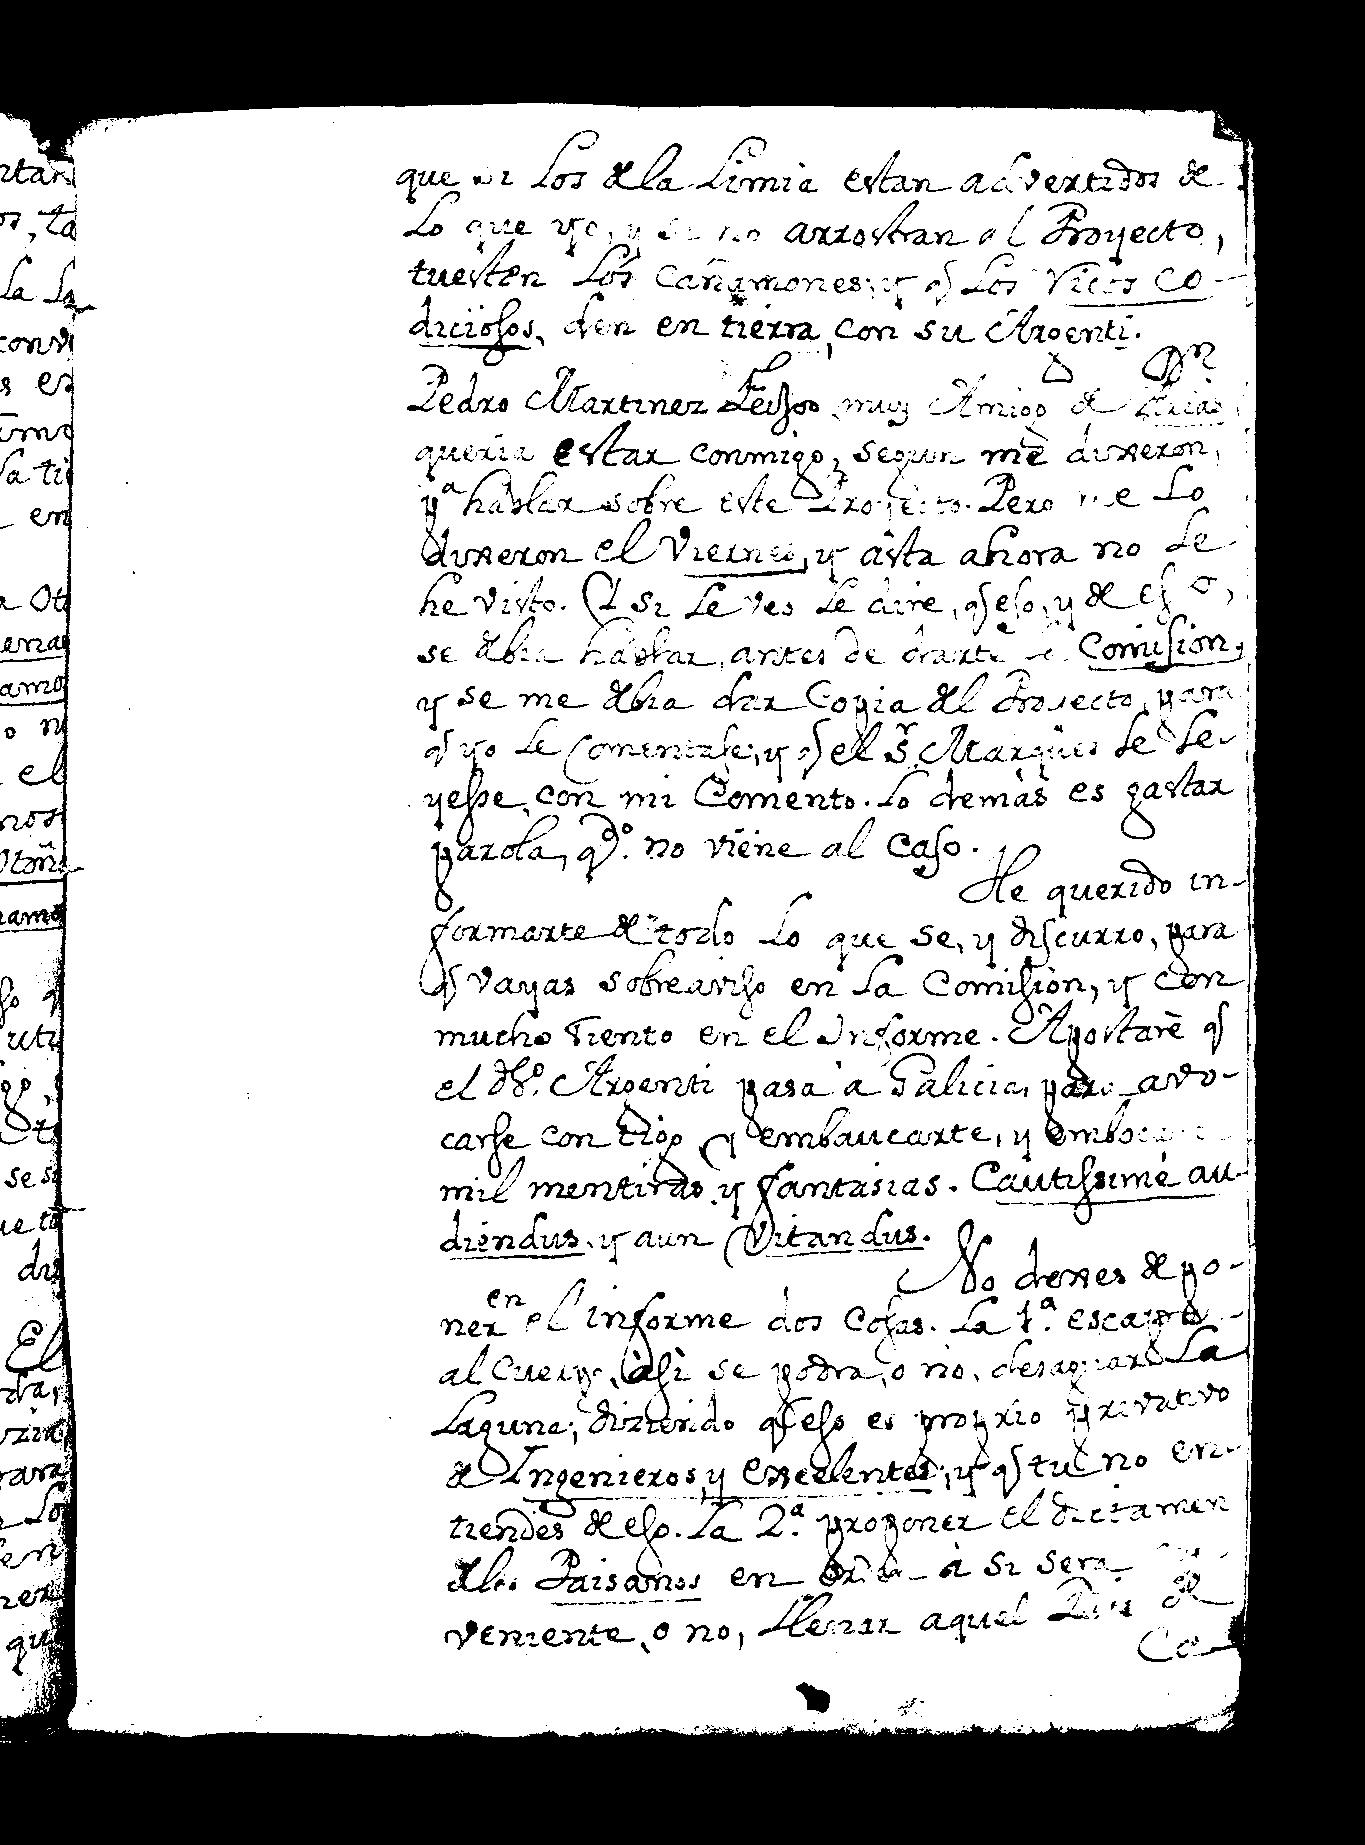 que si los de la Limia estan advertidos de
lo que yo, y si no arrostran al Proyecto,
tuesten los cañamones, y q̃ los Vicos co-
diciosos, den en tierra, con su Argenti.
Dn
Pedro Martinez Feijoo muy Amigo de
queria estar conmigo, segun me dixeron,
pa hablar sobre este Proyecto. Pero me lo
dixeron el Viernes, y asta ahora no le
he visto. Y si le veo le dire, q̃ eso, y de eso,
se debia hablar, antes de darte la Comision,
y se me debia dar Copia del Proyecto, para
q̃ yo le Comentase, y q̃ el Sr Marques le le-
yesse, con mi Comento. Lo demàs es gastar
parola, qdo. no viene al caso.
He querido in-
formarte de todo lo que se, y discurro, para
q̃ vayas sobreaviso en la Comision, y con
mucho tiento en el Informe. Apostarè q̃
el dho. Argenti pasa à Galicia, para avo-
carse contigo y embaucarte, y embocarte
mil mentiras y fantasias. Cautissimè au-
diendus y aun Vitandus.
No dexes de po-
ner en el informe dos cosas. La 1.a escapar
al Cuerpo, àsi se podra, o no, desaguar la
Laguna; diziendo q̃ eso es proprio privativo
de Ingenieros, y excelentes, y q̃ tu no en-
tiendes de eso. La 2.a proponer el dictamen
de los Paisanos en orden à si sera
veniente, o no, llenar aquel Pais de
Ca-